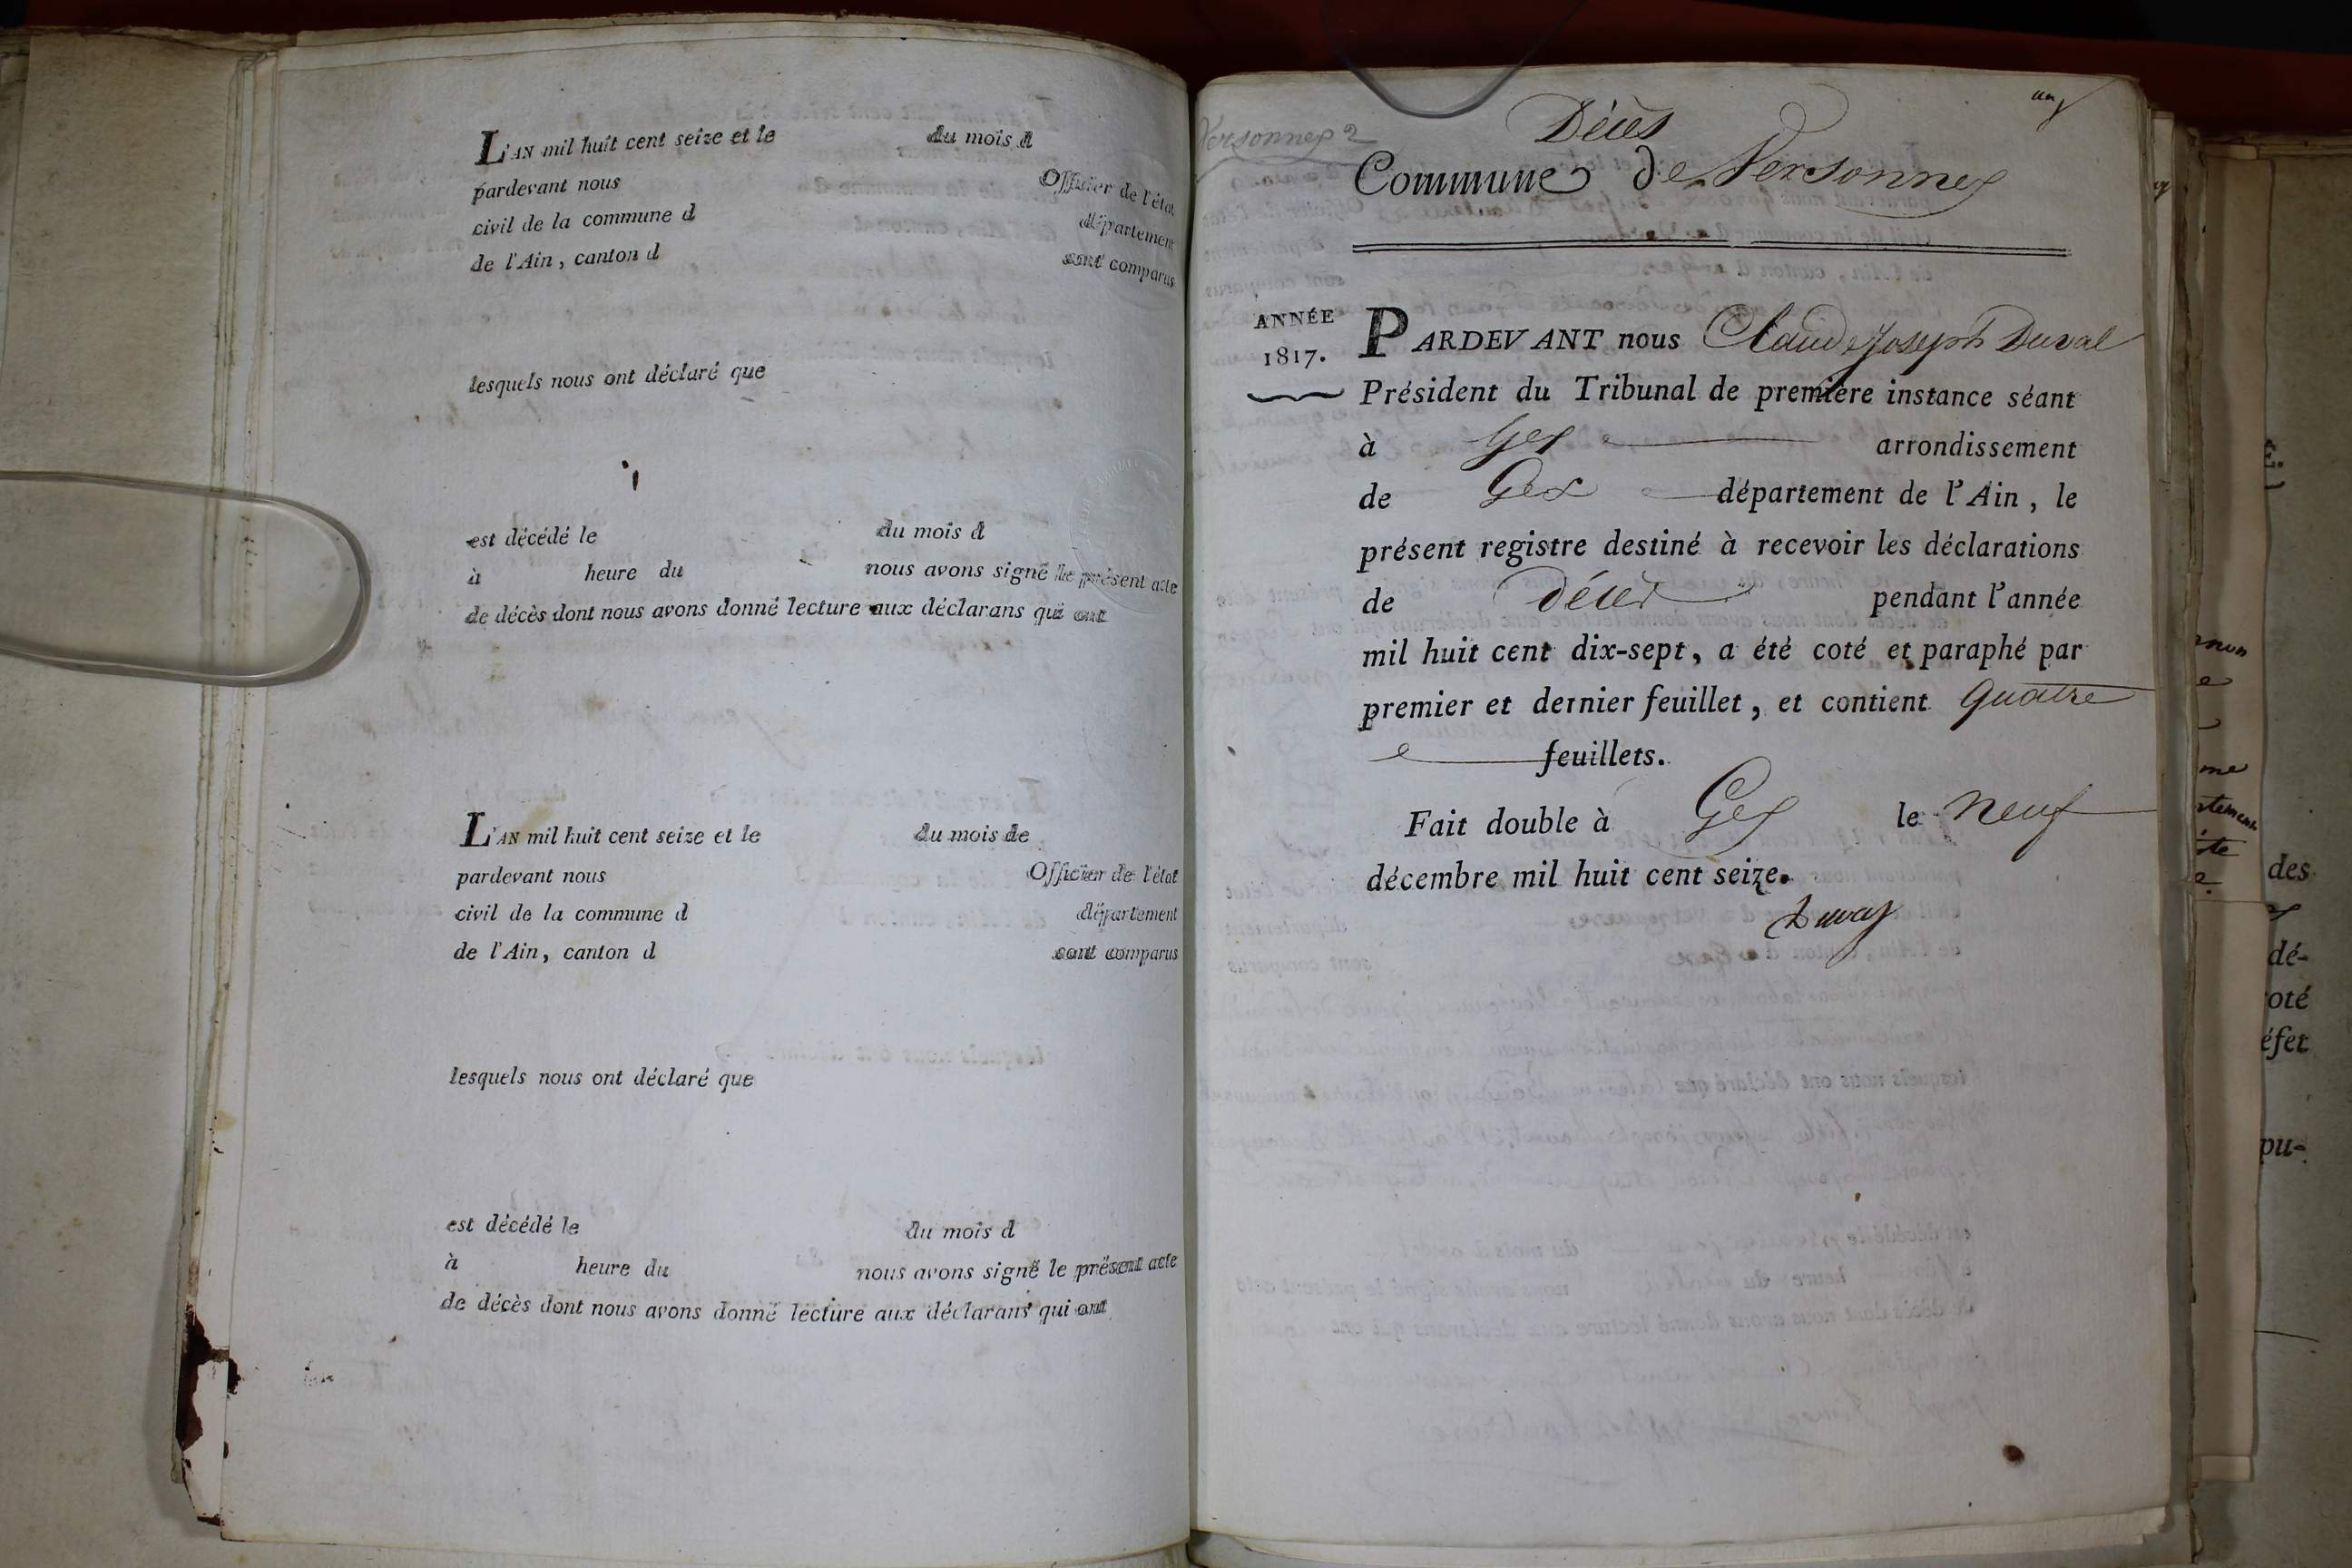 L'AN mil huit cent seize et le du mois d
pardevant nous Officier de l'état
civil de la commune d département
de l'Ain, canton d sont comparus
lesquels nous ont déclaré que
est décédé le du mois d
à heure du nous avons signé le présent acte
de décès dont nous avons donné lecture aux déclarans qui ont
L'AN mil huit cent seize et le du mois de
pardevant nous Officier de l'état
civil de la commune d département
de l'Ain, canton d sont comparus
lesquels nous ont déclaré que
est décédé le du mois d
à heure du nous avons signé le présent acte
de décès dont nous avons donné lecture aux déclarans qui ont
un
Versonnex 2
Décès
Commune de Versonnex
ANNÉE
1817.
PARDEVANT nous Claude Joseph Duval
Président du Tribunal de première instance séant
à Gex arrondissement
de Gex département de l'Ain, le
présent registre destiné à recevoir les déclarations
de Décès pendant l'année
mil huit cent dix-sept, a été coté et paraphé par
premier et dernier feuillet, et contient quatre
feuillets.
Fait double à Gex le neuf
décembre mil huit cent seize.
Duval
des
dé-
oté
éfet
pu-